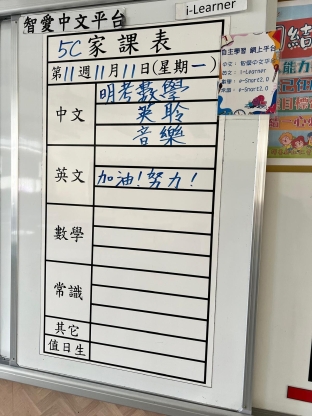 智愛中文平台
i-Learner
5C家課表
第11週11月11日(星期一)
中文
明考數學
英聆
音樂
英文
加油!努力!
數學
常識
其它
值日生
自主學習 網上平台
中文:智愛中文平台
英文:i-Learner
數學:e-Smart2.0
常識:e-Smart2.0